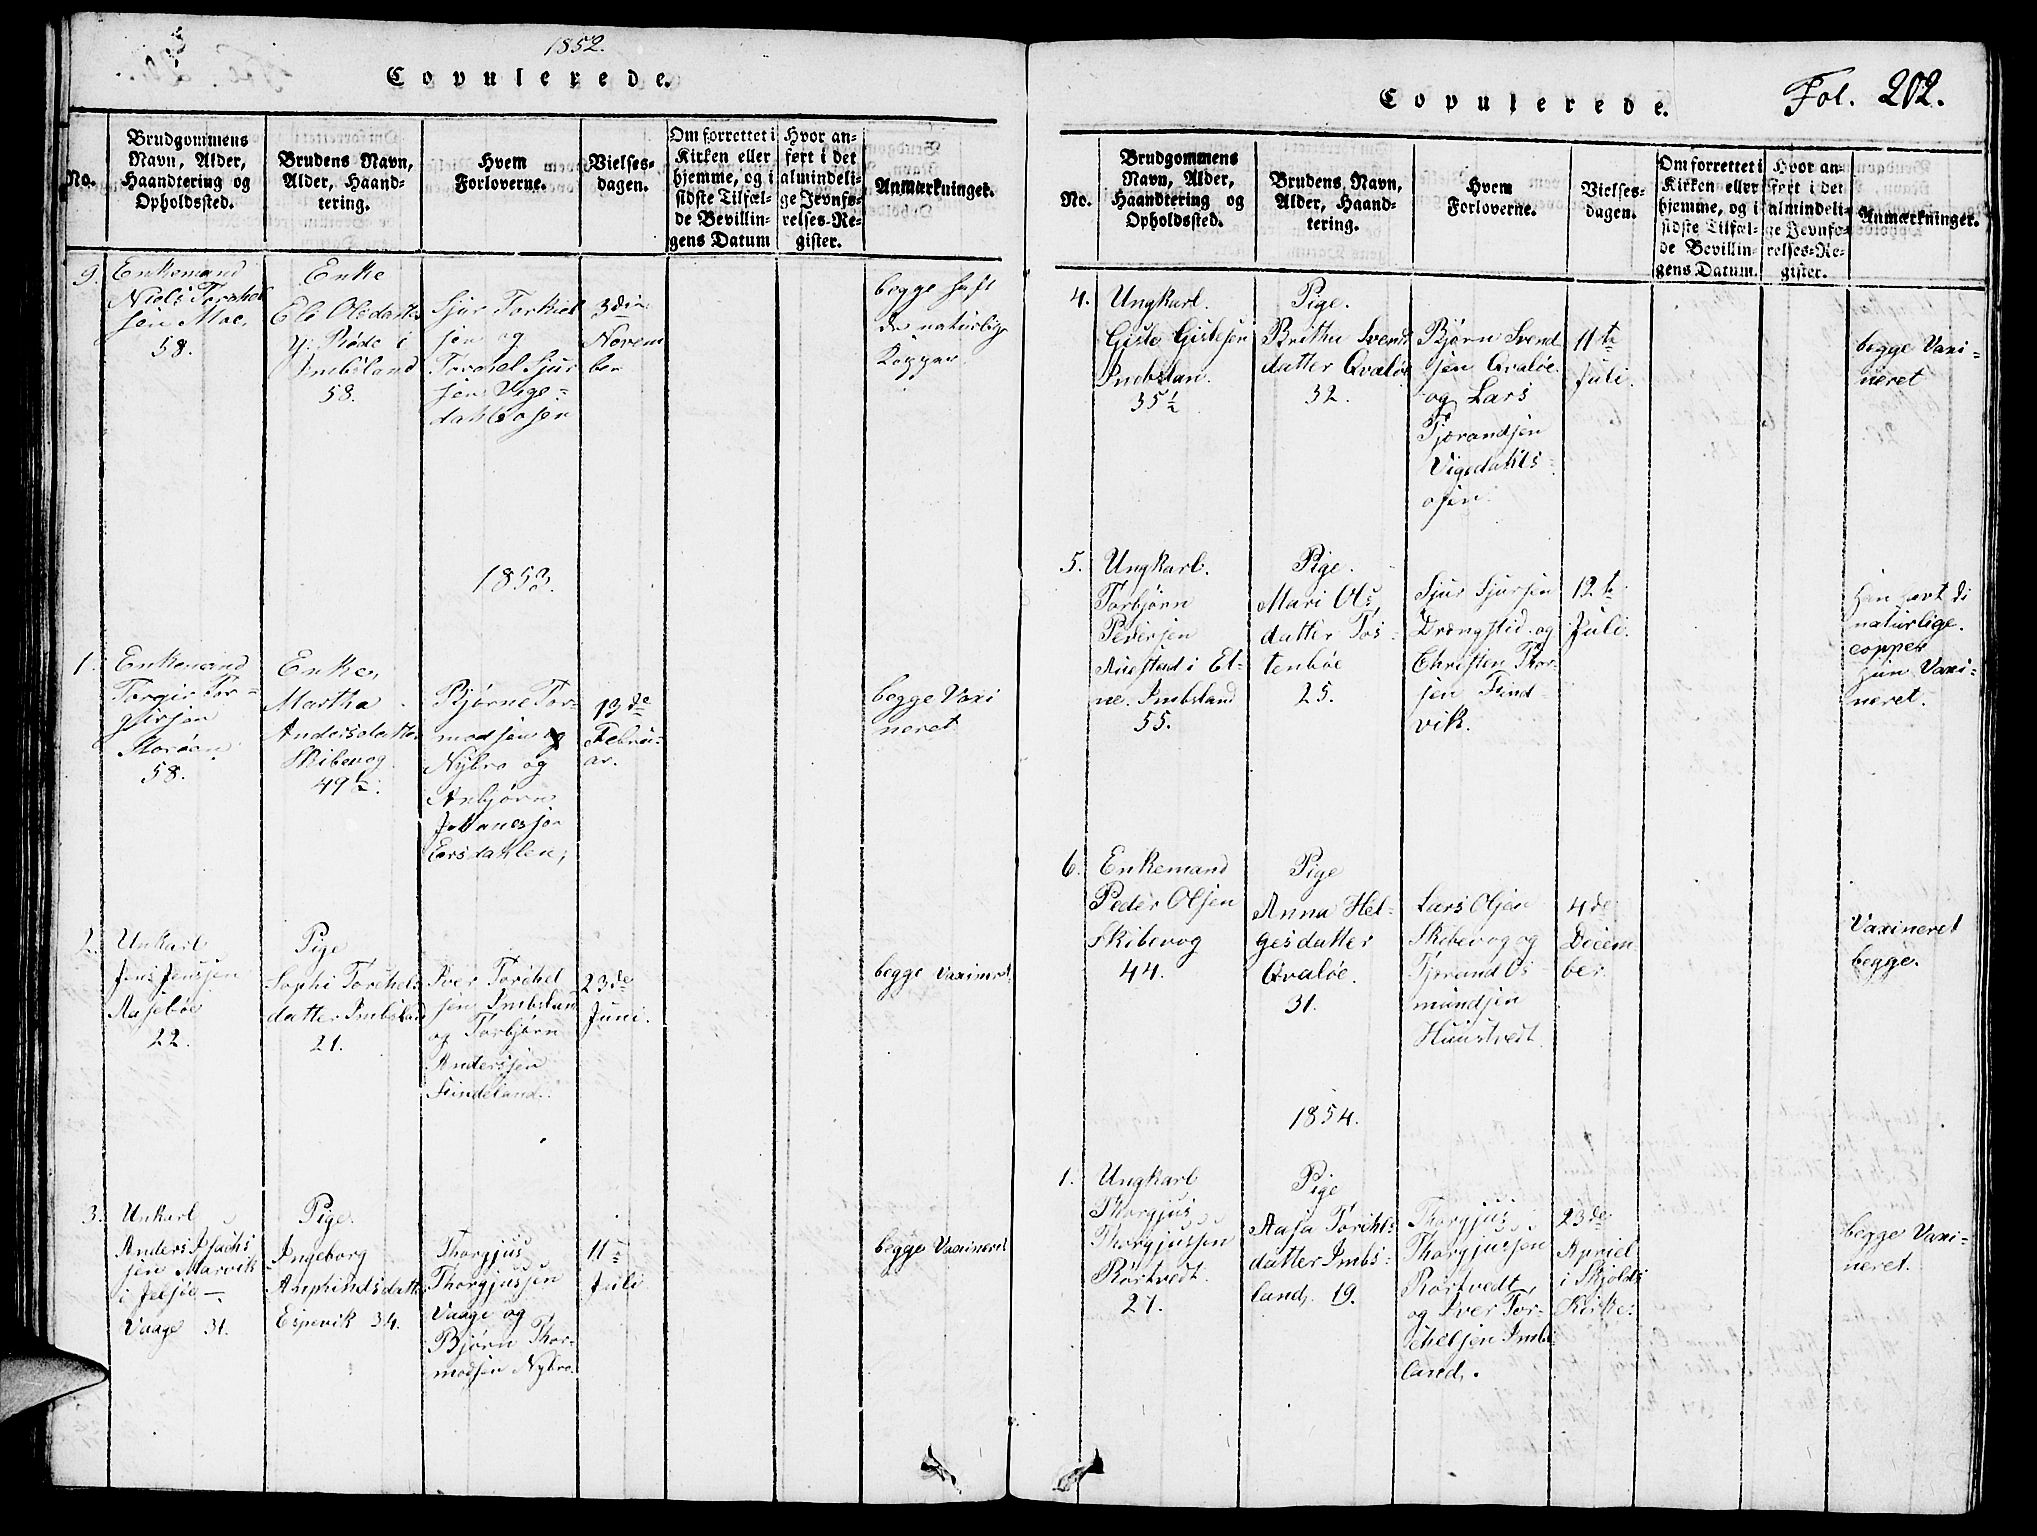 1852.
Copulerede.
No.
Brudgommens
Navn, Alder,
Haandtering og
Opholdssted.
Brudens Navn,
Alder, Haand-
tering.
Hvem
Forloverne.
Vielses-
dagen.
Om forrettet i
Kirken eller
hjemme, og i
sidste Tilfæl-
de Bevillin-
gens Datum
Hvor an-
ført i det
almindeli-
ge Jevnfø-
relses-Re-
gister.
Anmærkninger.
9.
Enkemand
Niels Torchel
sen Moe.
58.
Enke
Eli Olsdatter
Røde i
Imbsland
58.
Sjur Torkiel
sen og
Torchel Sjur
sen Vige-
dahlsosen
3die
Novem
ber
begge haft
de naturlige
Kopper
1853.
1.
Enkemand
Torgir Tor-
girsen
58.
Enke,
Martha
Andersdatter
Skibevog
49½.
Bjørne Tor-
modsen og
Nybro og
Anbjørn
Johanessen
Eersdahlen;
13de
Februi-
ar.
begge Vaxi
neret
2.
Unkarl
Jens Jenssen
Aasebøe
22.
Pige
Sophi Torchels
datter Imbsland
21.
Iver Torchel
sen Imbsland
og Torbjørn
Anderssen
Sindeland.
23de
Juni.
begge Vaxineret
3.
Unkarl
Anders Isachs
sen Marvik
i Jelsøe –
Vaage 31.
Pige.
Ingeborg
Amphindsdatter
Espevik 34.
Thorgjus
Thorgjussen
Vaage og
Bjørn Thor-
modsen Nybro.
11te
Juli
begge Vaxineret
Fol. 202.
Copulerede.
No.
Brudgommens
Navn, Alder,
Haandtering og
Opholdssted.
Brudens Navn,
Alder, Haand-
tering.
Hvem
Forloverne.
Vielses-
dagen.
Om forrettet i
Kirken eller
hjemme, og i
sidste Tilfæl-
de Bevillin-
gens Datum.
Hvor an-
ført i det
almindeli-
ge Jevnfø-
relses-Re-
gister.
Anmærkninger.
4.
Ungkarl.
Gisle Gislesen
Imbslan.
35½
Pige.
Brithe Svends
datter Qvaløe
32.
Bjørn Svend
sen Qvaløe
og Lars
Tjerandsen
Vigedahls-
osen.
11te
Juli.
begge Vaxi-
neret
5.
Ungkarl.
Torbjørn
Pedersen
Austad i Et-
ne. Imbsland
55.
Pige.
Mari Ols
datter Tos-
tenbøe
25.
Sjur Sjursen
Drengstid og
Christen Thor-
sen Tind-
vik.
12te
Juli.
han havt di
naturlige.
copper
hun Vaxi-
neret.
6.
Enkemand
Peder Olsen
Skibevog
44.
Pige
Anna Hel-
gesdatter
Qvaløe.
31.
Lars Olsen
Skibevog og
Tjerand Os-
mundsen
Huustvedt.
4de
Decem-
ber.
Vaxineret
begge.
1854.
1.
Ungkarl
Thorgjus
Thorgjussen
Rørtvedt.
21.
Pige
Aasa Torchels
datter Imbs-
land, 19.
Thorgjus
Thorgjussen
Rørtvedt,
og Iver Tor-
chelsen Imbs
land,.
23de
Apriel
i Skjolds
Kirke.
begge Vaxi-
neret.